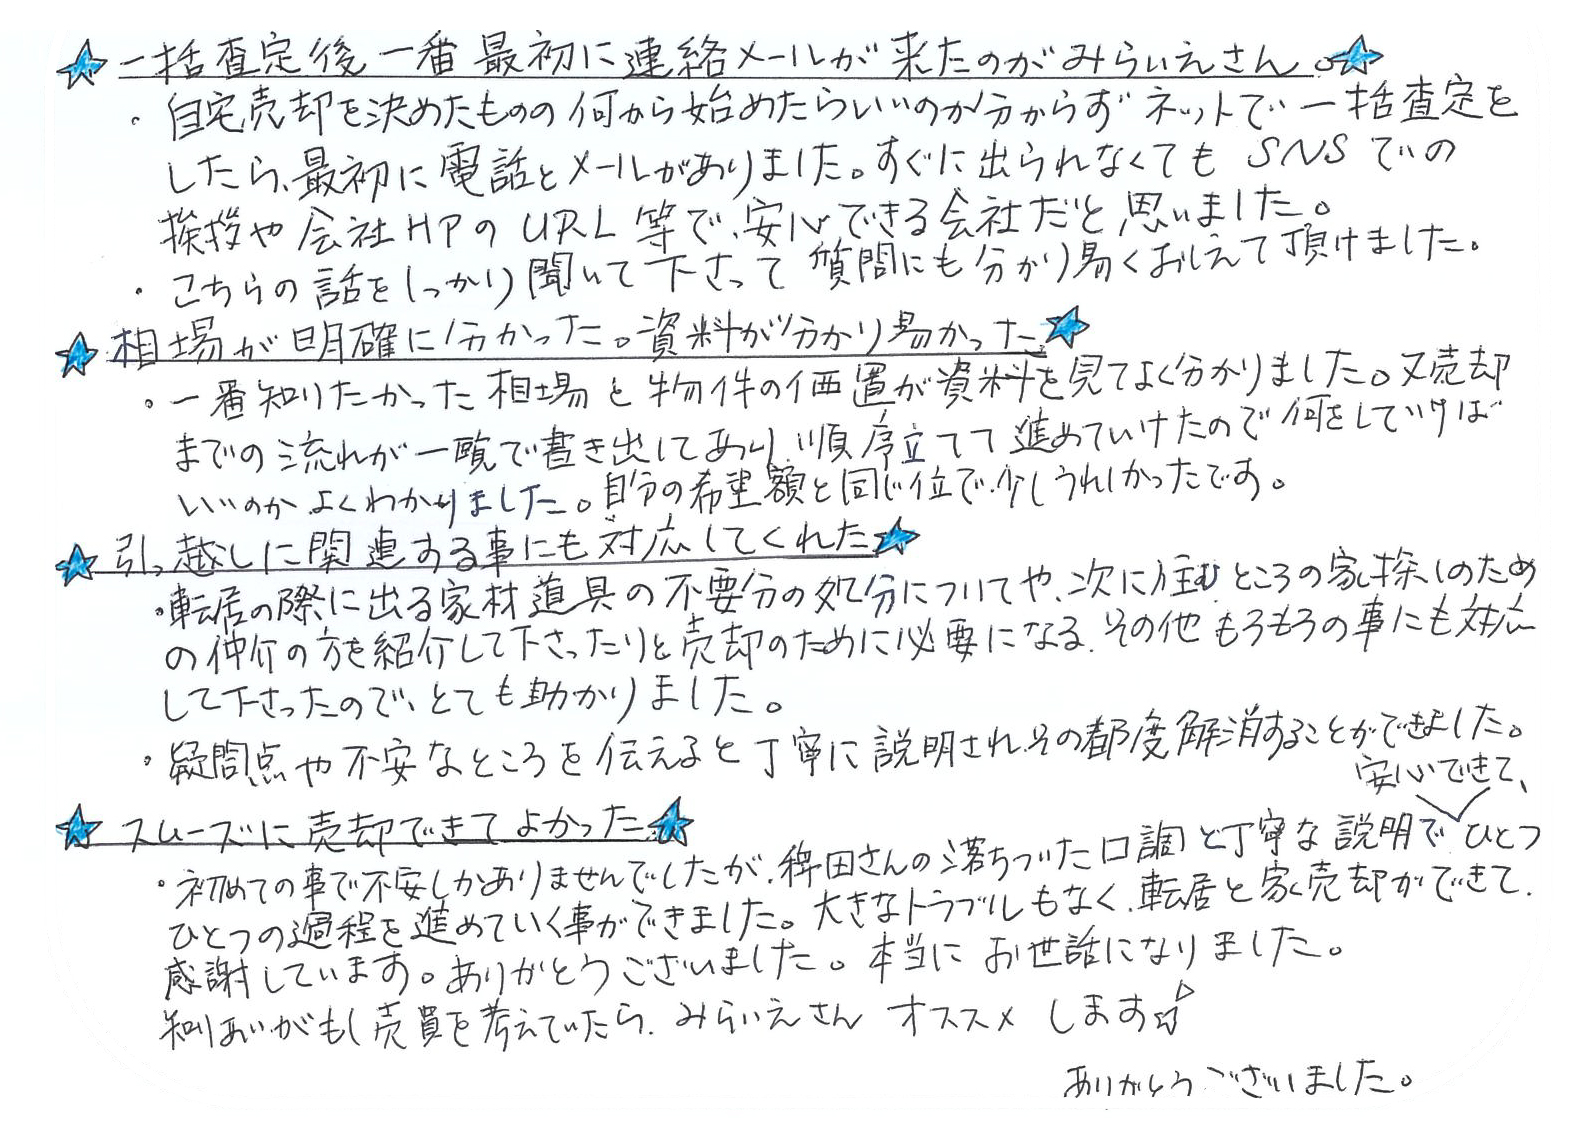 ★一括査定後一番最初に連絡メールが来たのがみらいえさん。★
・自宅売却を決めたものの何から始めたらいいのか分からずネットで一括査定を
したら、最初に電話とメールがありました。すぐに出られなくてもSNSでの
挨拶や会社HPのURL等で、安心できる会社だと思いました。
・こちらの話をしっかり聞いて下さって質問にも分かり易くおしえて頂けました。
★相場が明確に分かった。資料が分かり易かった★
・一番知りたかった相場と物件の価置が資料を見てよく分かりました。又売却
までの流れが一覧で書き出してあり、順序立てて進めていけたので何をしていけば
いいのかよくわかりました。自分の希望額と同じ位で、少しうれしかったです。
★引っ越しに関連する事にも対応してくれた★
・転居の際に出る家材道具の不要分の処分についてや、次に住むところの家探しのため
の仲介の方を紹介して下さったりと売却のために必要になる、その他もろもろの事にも対応
して下さったので、とても助かりました。
・疑問点や不安なところを伝えると丁寧に説明され、その都度解消することができました。
★スムーズに売却できてよかった★
・初めての事で不安しかありませんでしたが、稗田さんの落ちづいた口調と丁寧な説明で安心できて、ひとつ
ひとつの過程を進めていく事ができました。大きなトラブルもなく、転居と家売却ができて、
感謝しています。ありがとうございました。本当にお世話になりました。
知りあいがもし売買を考えていたら、みらいえさんオススメします☆
ありがとうございました。